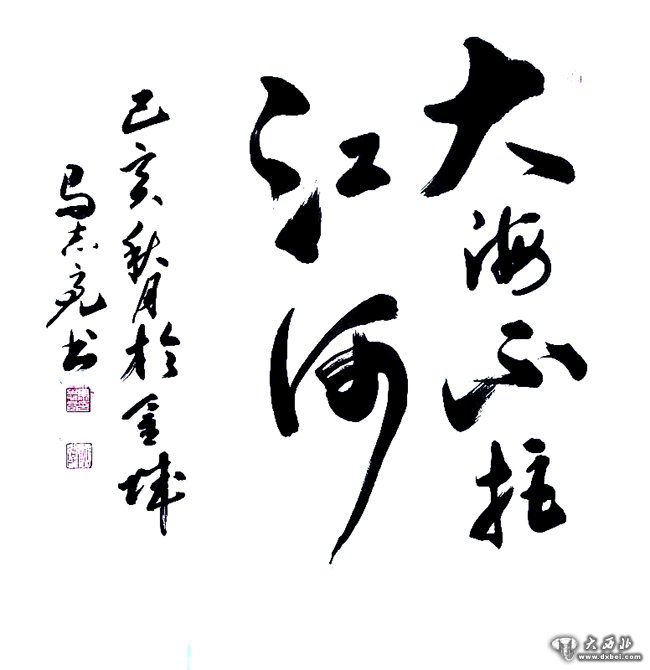 大海不拒
江河
己亥秋月於金城
马志亮书
大西北
www.dxbei.com